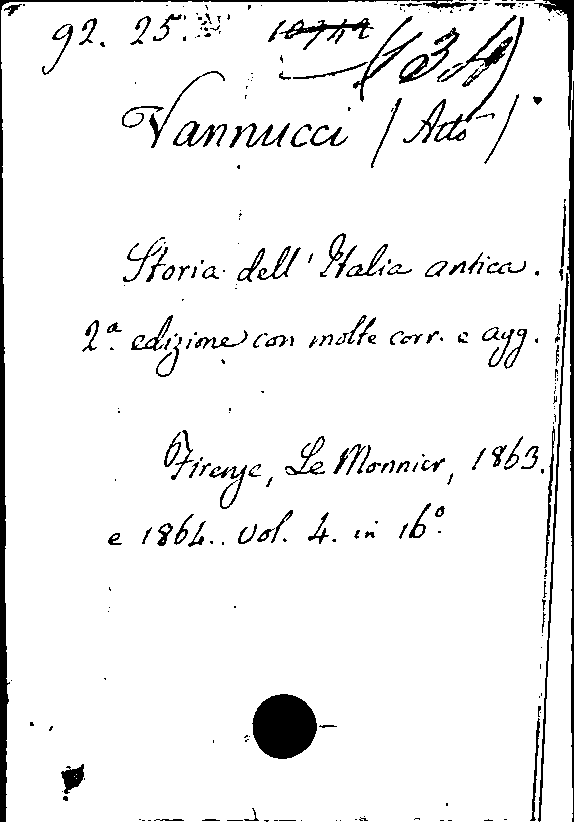 92. 25.
Vannucci (Atto)
Storia dell' Italia antica.
2ª edizione con molte corr. e agg.
Firenze, Le Monnier, 1863.
e 1864. vol. 4. in 16º.